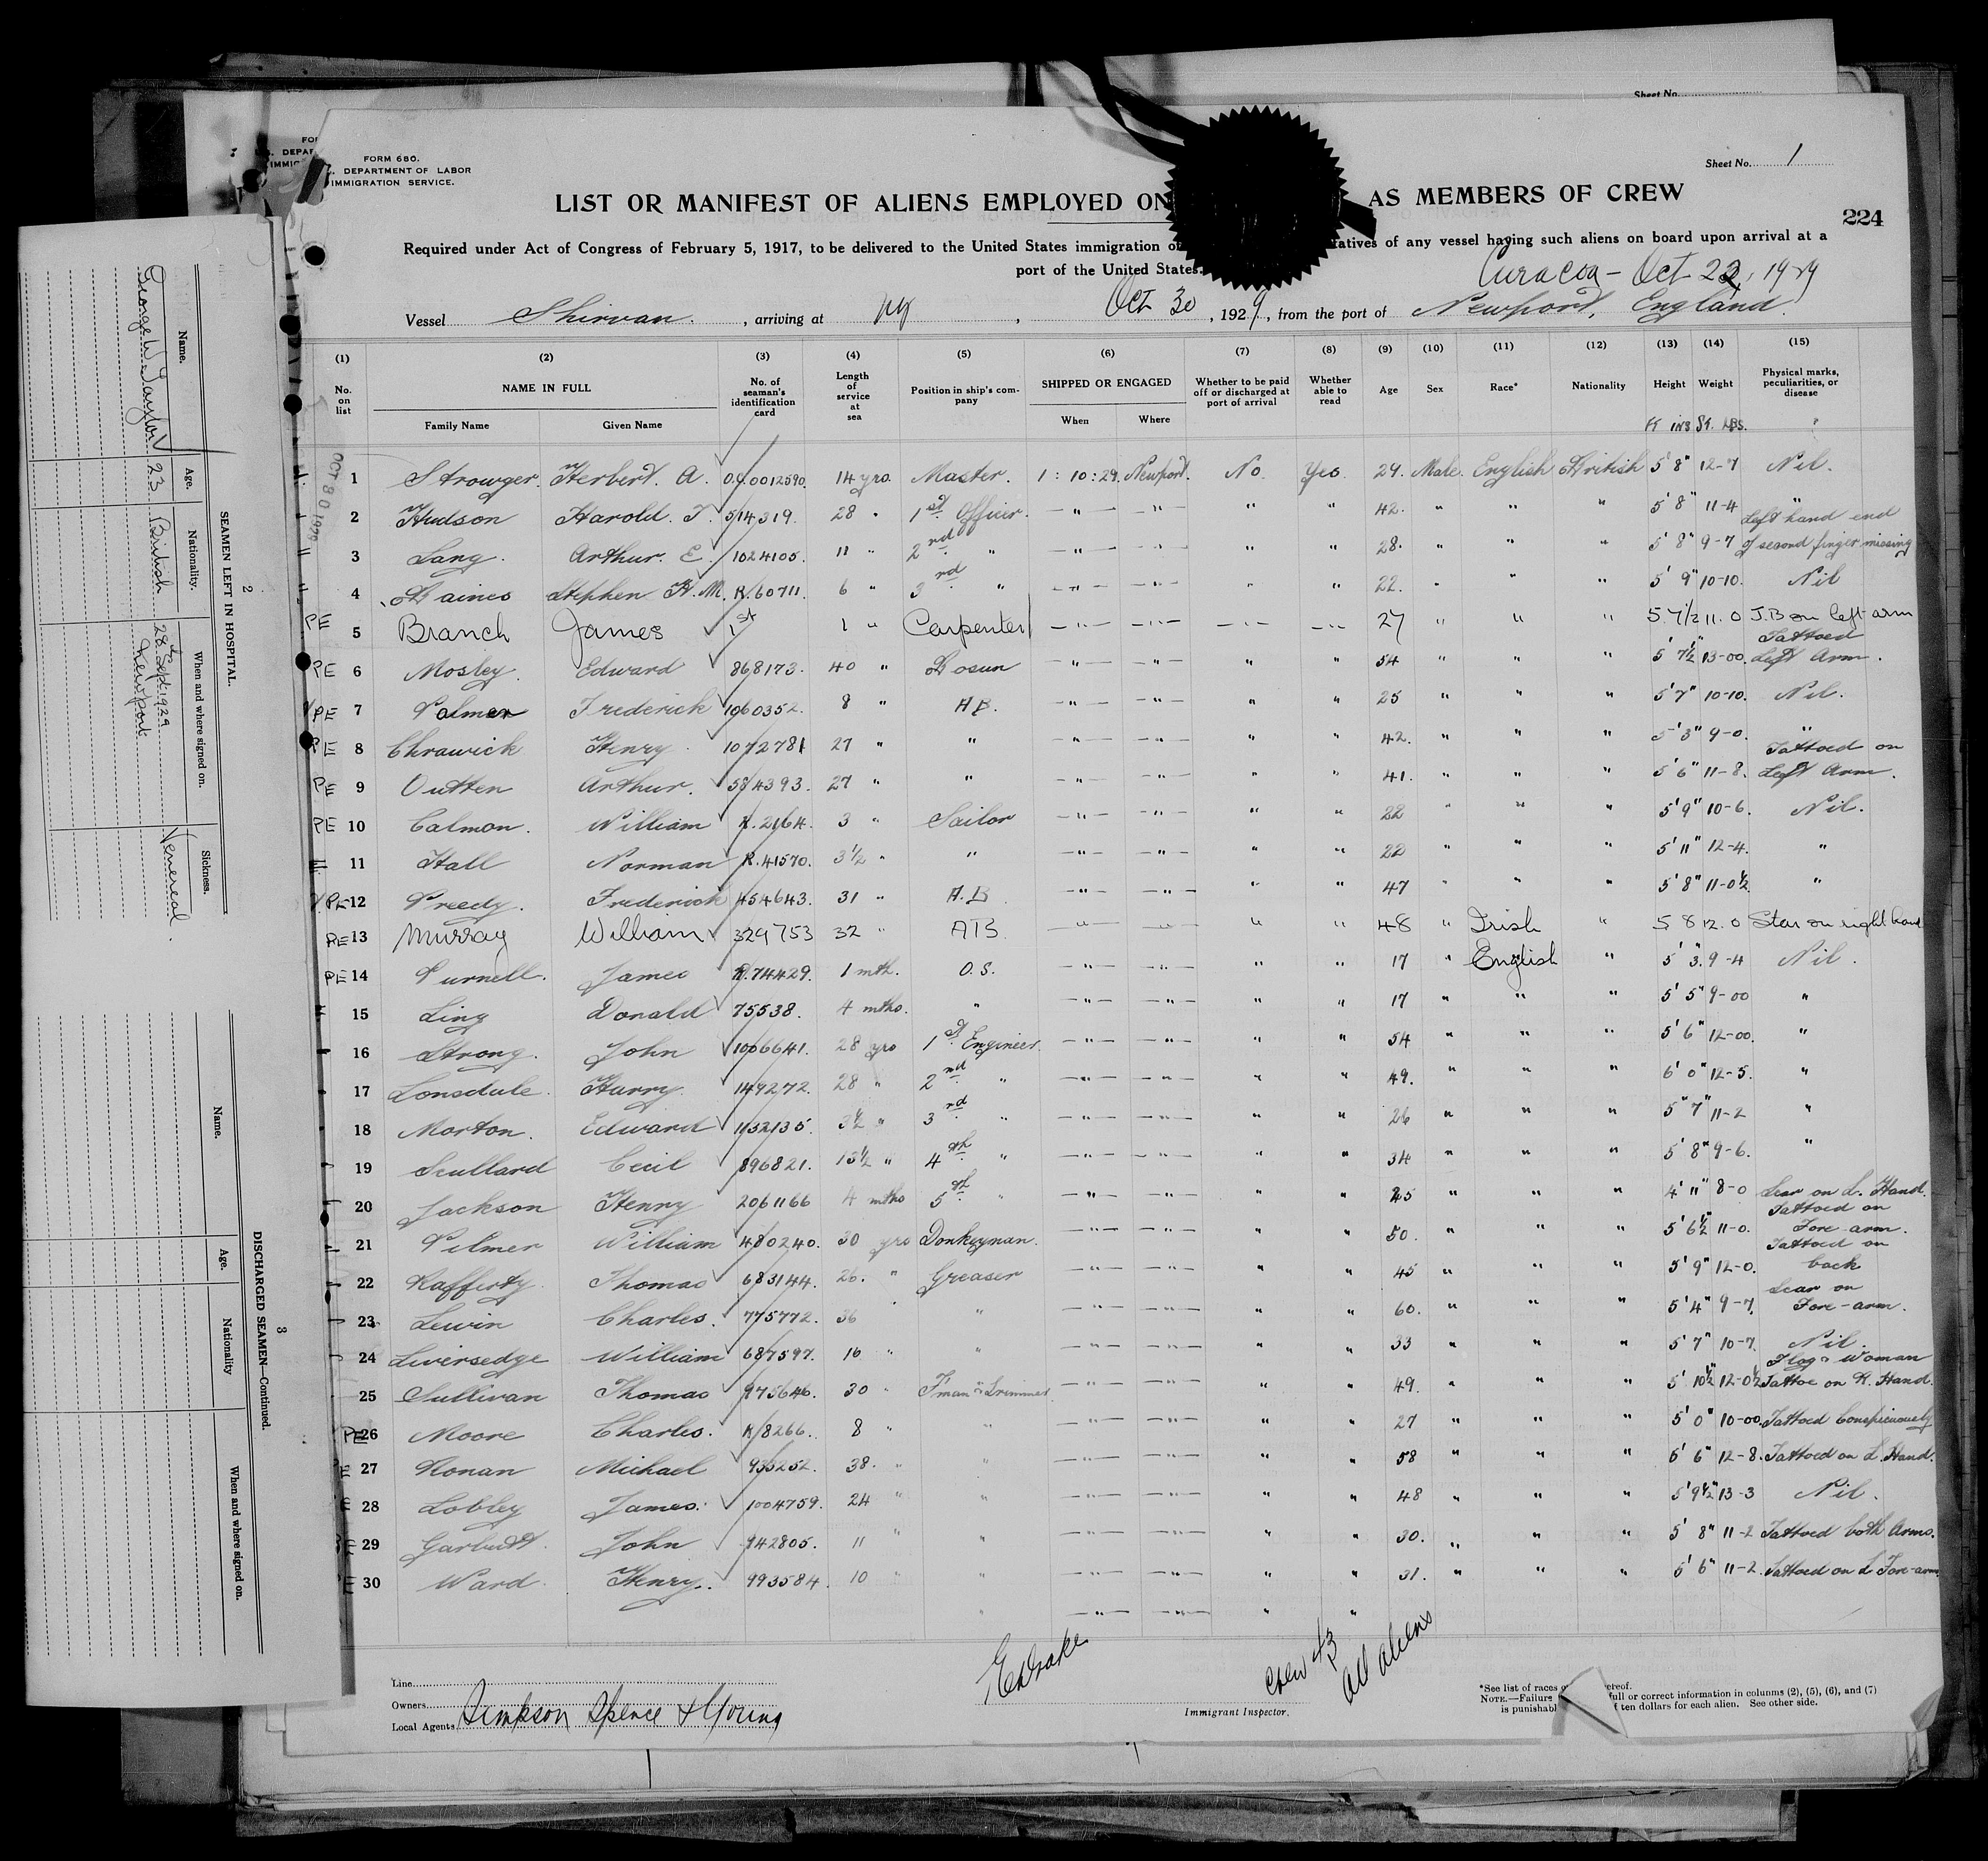 Sheet No.
FORM 680.
DEPARTMENT OF LABOR
IMMIGRATION SERVICE.
Sheet No. 1
LIST OR MANIFEST OF ALIENS EMPLOYED ON AS MEMBERS OF CREW
224
Required under Act of Congress of February 5, 1917, to be delivered to the United States immigration of tatives of any vessel having such aliens on board upon arrival at a
port of the United States.
Curacoa - Oct 22, 1929
Vessel Shirvan. , arriving at NY , Oct 30 , 1929, from the port of Newport, England.
(1) (2) (3) (4) (5) (6) (7) (8) (9) (10) (11) (12) (13) (14) (15)
No. on list NAME IN FULL Family Name Given Name No. of seaman's identification card Length of service at sea Position in ship's company SHIPPED OR ENGAGED When Where Whether to be paid off or discharged at port of arrival Whether able to read Age Sex Race* Nationality Height Weight Physical marks, peculiarities, or disease
Ft ins St. lbs.
OCT 30 1929
1 Strowger. Herbert. A. 0012590. 14 yrs. Master. 1:10:29. Newport. No. Yes. 29. Male. English British 5' 8" 12-7 Nil.
2 Hudson Harold. T. 514319. 28 " 1st Officer. " " " " 42. " " " 5' 8" 11-4 "
3 Lang. Arthur. E. 1024105. 11 " 2nd " " " " " 28. " " " 5' 8" 9-7 Left hand end of second finger missing
4 Haines Stephen H.M. R.60711. 6 " 3rd " " " " " 22. " " " 5' 9" 10-10. Nil
PE 5 Branch James 1st 1 " Carpenter " " " " 27 " " " 5 7 1/2 11.0 J.B on left arm
PE 6 Mosley. Edward 868173. 40 " Bosun " " " " 54 " " " 5' 7 1/2" 13-00. Tattoed Left Arm.
PE 7 Palmer Frederick 1060352. 8 " AB. " " " " 25 " " " 5' 7" 10-10. Nil.
PE 8 Chrawick Henry. 1072781 27 " " " " " " 42. " " " 5' 3" 9-0. "
PE 9 Outten Arthur. 584393. 27 " " " " " " 41. " " " 5' 6" 11-8. Tattoed on Left Arm.
PE 10 Calmon. William R.2164. 3 " Sailor " " " " 22 " " " 5' 9" 10-6. Nil.
11 Hall Norman R.41570. 3 1/2 " " " " " " 22 " " " 5' 11" 12-4. "
PE 12 Preedy. Frederick 454643. 31 " A.B " " " " 47 " " " 5' 8" 11-0 1/2 "
PE 13 Murray William 329753 32 " AB " " " " 48 " Irish " 5 8 12.0 Star on right hand
PE 14 Purnell. James R.74429. 1 mth. O.S. " " " " 17 " English " 5' 3" 9-4 Nil.
15 Ling Donald 75538. 4 mths. " " " " " 17 " " " 5' 5" 9-00 "
16 Strong. John 1006641. 28 yrs 1st Engineer. " " " " 54 " " " 5' 6" 12-00. "
17 Lonsdale. Harry. 149272. 28 " 2nd " " " " " 49. " " " 6' 0" 12-5. "
18 Morton. Edward 1132135. 3 1/2 " 3rd " " " " " 26 " " " 5' 7" 11-2 "
19 Scullard Cecil 896821. 13 1/2 " 4th " " " " " 34 " " " 5' 8" 9-6. "
20 Jackson Henry 2061166 4 mths 5th " " " " " 25 " " " 4' 11" 8-0 Scar on L. Hand.
21 Pilmer William 480240. 30 yrs Donkeyman. " " " " 50. " " " 5' 6 1/2" 11-0. Tattoed on Fore-arm.
22 Rafferty. Thomas 683144. 26. " Greaser " " " " 45 " " " 5' 9" 12-0. Tattoed on back
23 Lewin Charles. 775772. 36 " " " " " " 60. " " " 5' 4" 9-7. Scar on Fore-arm.
24 Liversedge William 687597. 16 " " " " " " 33 " " " 5' 7" 10-7. Nil.
25 Sullivan Thomas 975646. 30 " F'man & Trimmer " " " " 49. " " " 5' 10 1/2" 12-0 1/2 Flag & Woman Tattoe on R. Hand.
PE 26 Moore Charles. R/8266. 8 " " " " " " 27 " " " 5' 0" 10-00. Tattoed Conspicuously
PE 27 Ronan Michael 935252. 38. " " " " " " 58 " " " 5' 6" 12-8. Tattoed on L. Hand.
PE 28 Lobley James. 1004759. 24 " " " " " " 48 " " " 5' 9 1/2" 13-3 Nil.
PE 29 Garbutt. John 942805. 11 " " " " " " 30. " " " 5' 8" 11-2 Tattoed both Arms.
PE 30 Ward. Henry. 993584. 10 " " " " " " 31. " " " 5' 6" 11-2. Tattoed on L Fore-arm
Line
Owners
Local Agents Simpson Spence & Young
E Drake
Immigrant Inspector.
Crew 43
All aliens
*See list of races ereof.
NOTE.—Failure full or correct information in columns (2), (5), (6), and (7)
is punishabl f ten dollars for each alien. See other side.
2
SEAMEN LEFT IN HOSPITAL.
Name. Age. Nationality. When and where signed on. Sickness.
George W Taylor 23 British 28th Sept. 1929 Newport Venereal.
3
DISCHARGED SEAMEN—Continued.
Name. Age. Nationality When and where signed on.